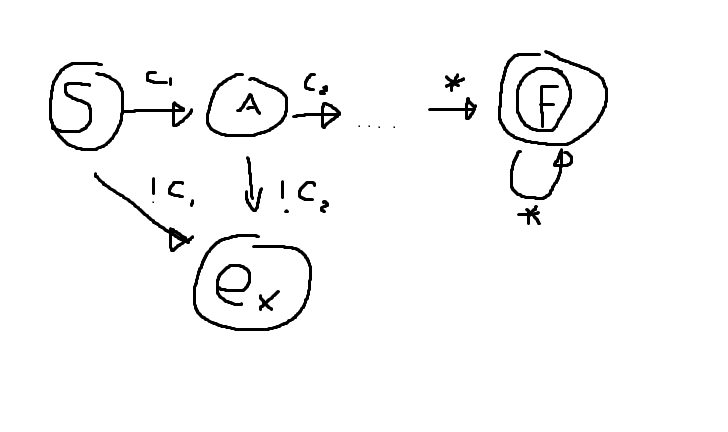 S C₁ A C₂ .... * F
! C₁ ! C₂ *
ex